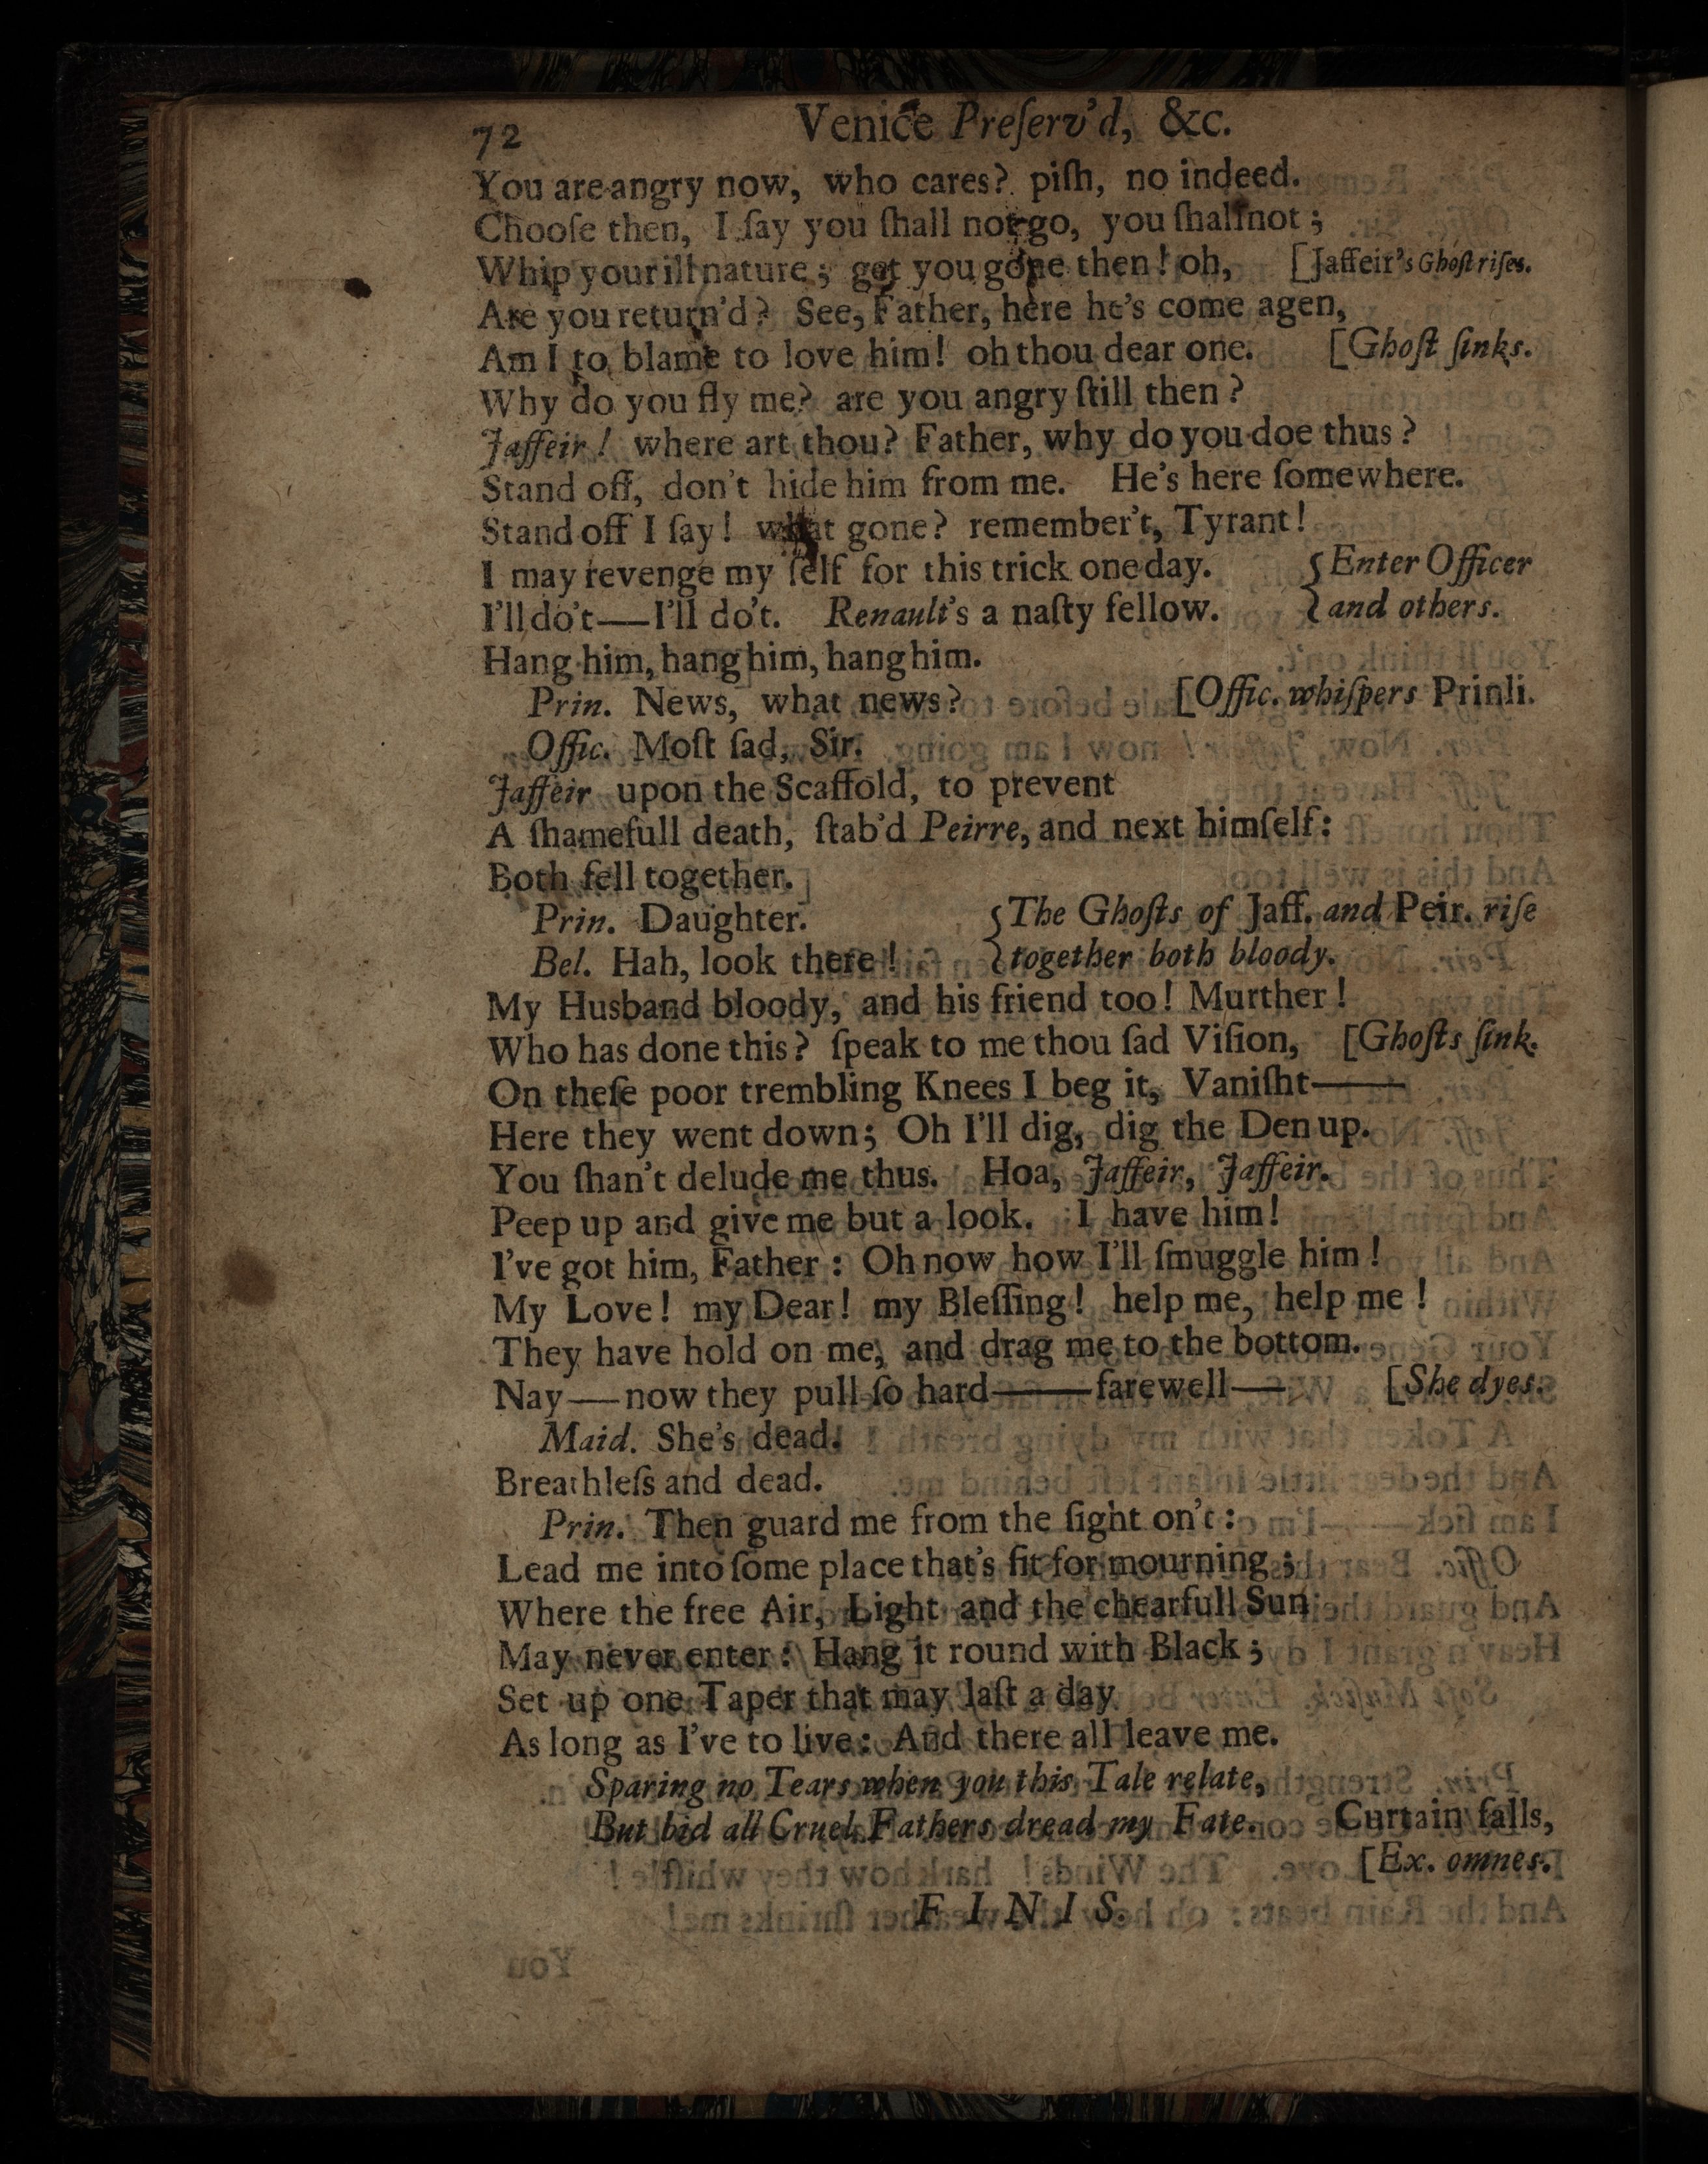 72 Venice Preſerv'd, &c.
You are angry now, who cares? piſh, no indeed.
Chooſe then, I ſay you ſhall not go, you ſhall not;
Whip your ill nature; get you gone then! oh, [Jaffeir's Ghoſt riſes.
Are you return'd? See, Father, here he's come agen,
Am I to blame to love him! oh thou dear one. [Ghoſt ſinks.
Why do you fly me? are you angry ſtill then?
Jaffeir! where art thou? Father, why do you doe thus?
Stand off, don't hide him from me. He's here ſomewhere.
Stand off I ſay! what gone? remember't, Tyrant!
I may revenge my ſelf for this trick one day. {Enter Officer
I'll do't—I'll do't. Renault's a naſty fellow. {and others.
Hang him, hang him, hang him.
Prin. News, what news? [Offic. whiſpers Prinli.
Offic. Moſt ſad, Sir.
Jaffeir upon the Scaffold, to prevent
A ſhamefull death, ſtab'd Peirre, and next himſelf:
Both fell together.
Prin. Daughter. {The Ghoſts of Jaff. and Peir. riſe
Bel. Hah, look there! {together both bloody.
My Husband bloody, and his friend too! Murther!
Who has done this? ſpeak to me thou ſad Viſion, [Ghoſts ſink.
On theſe poor trembling Knees I beg it, Vaniſht——
Here they went down; Oh I'll dig, dig the Den up.
You ſhan't delude me thus. Hoa, Jaffeir, Jaffeir.
Peep up and give me but a look. I have him!
I've got him, Father: Oh now how I'll ſmuggle him!
My Love! my Dear! my Bleſſing! help me, help me!
They have hold on me, and drag me to the bottom.
Nay—now they pull ſo hard——farewell— [She dyes.
Maid. She's dead.
Breathleſs and dead.
Prin. Then guard me from the ſight on't:
Lead me into ſome place that's fit for mourning;
Where the free Air, Light and the chearfull Sun
May never enter: Hang it round with Black;
Set up one Taper that may laſt a day
As long as I've to live: And there all leave me.
Sparing no Tears when you this Tale relate,
But bid all Cruel Fathers dread my Fate. Curtain falls,
[Ex. omnes.
FINIS.